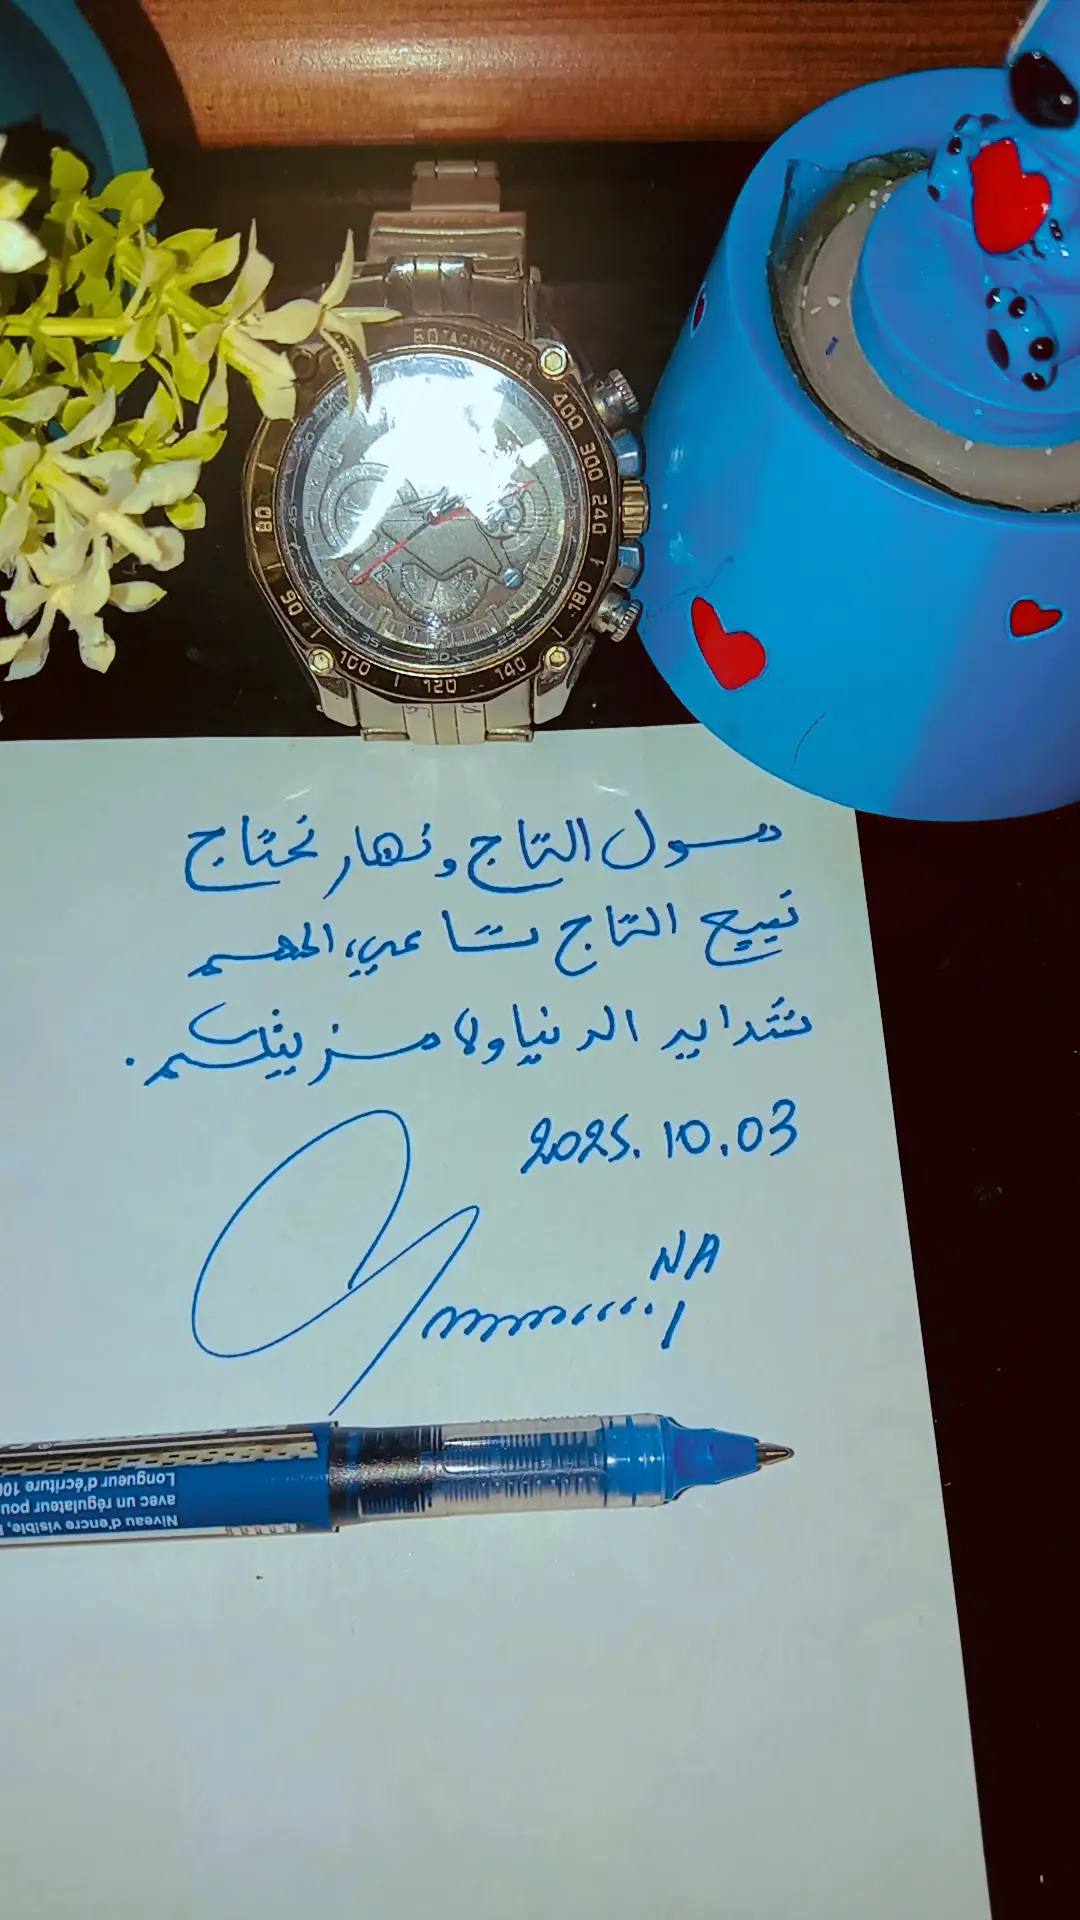 TACHYMETER
60
400
300
240
180
140
120
100
90
80
45
40
35
30
25
20
مسول التاج ونهار نحتاج
نبيع التاج تاعي، المهم
شدايد الدنيا ولا مزيتكم.
2025.10.03
NA
Longueur d'écriture
avec un régulateur pour
Niveau d'encre visible,